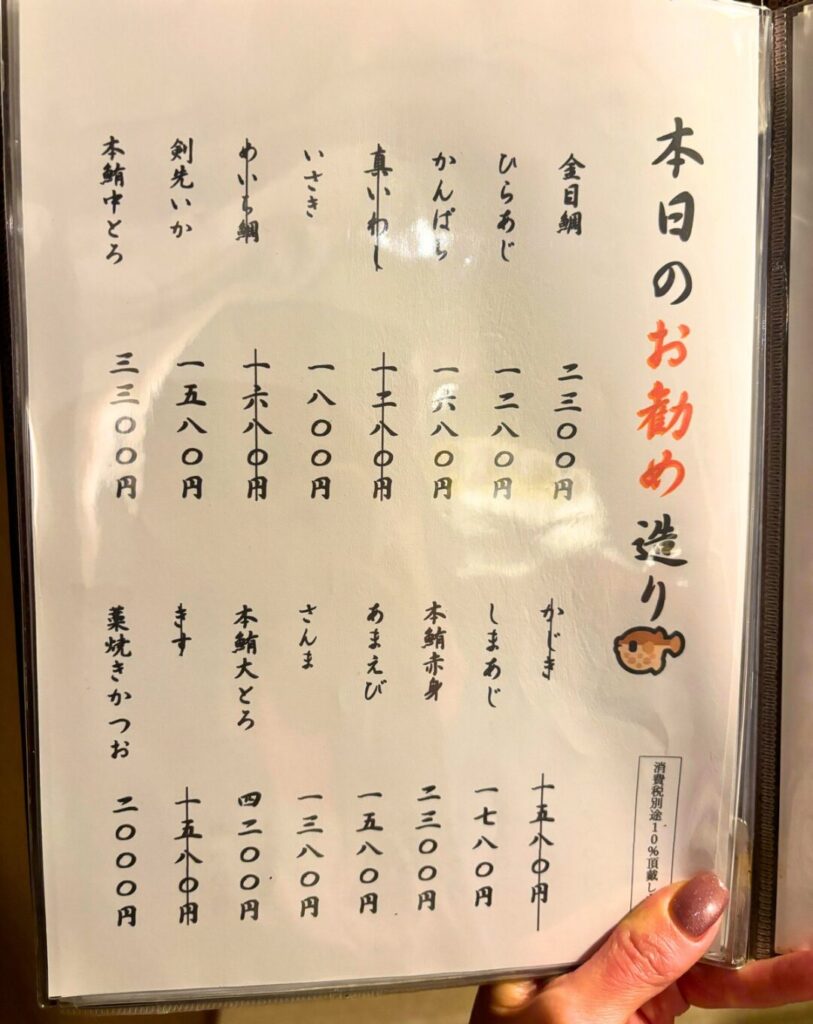 本日のお勧め造り
金目鯛 二三〇〇円
ひらあじ 一二八〇円
かんぱち 一六八〇円
真いわし 一二八〇円
いさき 一八〇〇円
めいち鯛 一六八〇円
剣先いか 一五八〇円
本鮪中とろ 三三〇〇円
かじき 一五八〇円
しまあじ 一七八〇円
本鮪赤身 二三〇〇円
あまえび 一五八〇円
さんま 一三八〇円
本鮪大とろ 四二〇〇円
きす 一五八〇円
藁焼きかつお 二〇〇〇円
消費税別途10%頂戴し